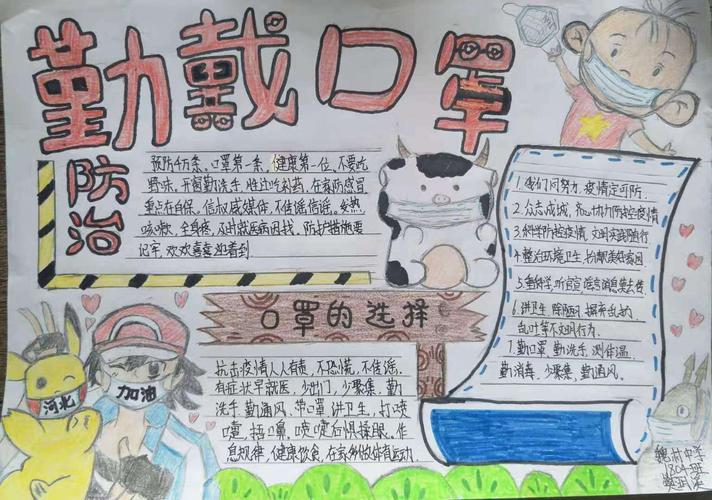 勤戴口罩
防治
预防千万条,口罩第一条,健康第一位,不要吃
野味,开窗勤洗手,胜过吃补药,在春防感冒
重点在自保,信权威媒体,不信谣信谣。发热
咳嗽,全身疼,及时就医病因找,防护措施要
记牢,欢欢喜喜迎
1.我们同努力,疫情定可防.
2.众志成城,齐心协力防控疫情
3.科学防控疫情,文明实践随行
4.整治环境卫生,
5.重科学,听官宣,谣言消息莫去传
6.讲卫生,除陋习,摒弃乱扔
乱吐等不文明行为.
7.勤口罩,勤洗手,测体温.
勤消毒,少聚集,勤通风.
口罩的选择
抗击疫情人人有责,不恐慌,不信谣,
有症状早就医,少出门,少聚集,勤
洗手,勤通风,带口罩,讲卫生,打喷
嚏,捂口鼻,喷嚏后慎揉眼,作
息规律,健康饮食,在家
河北
加油
中学
1804班